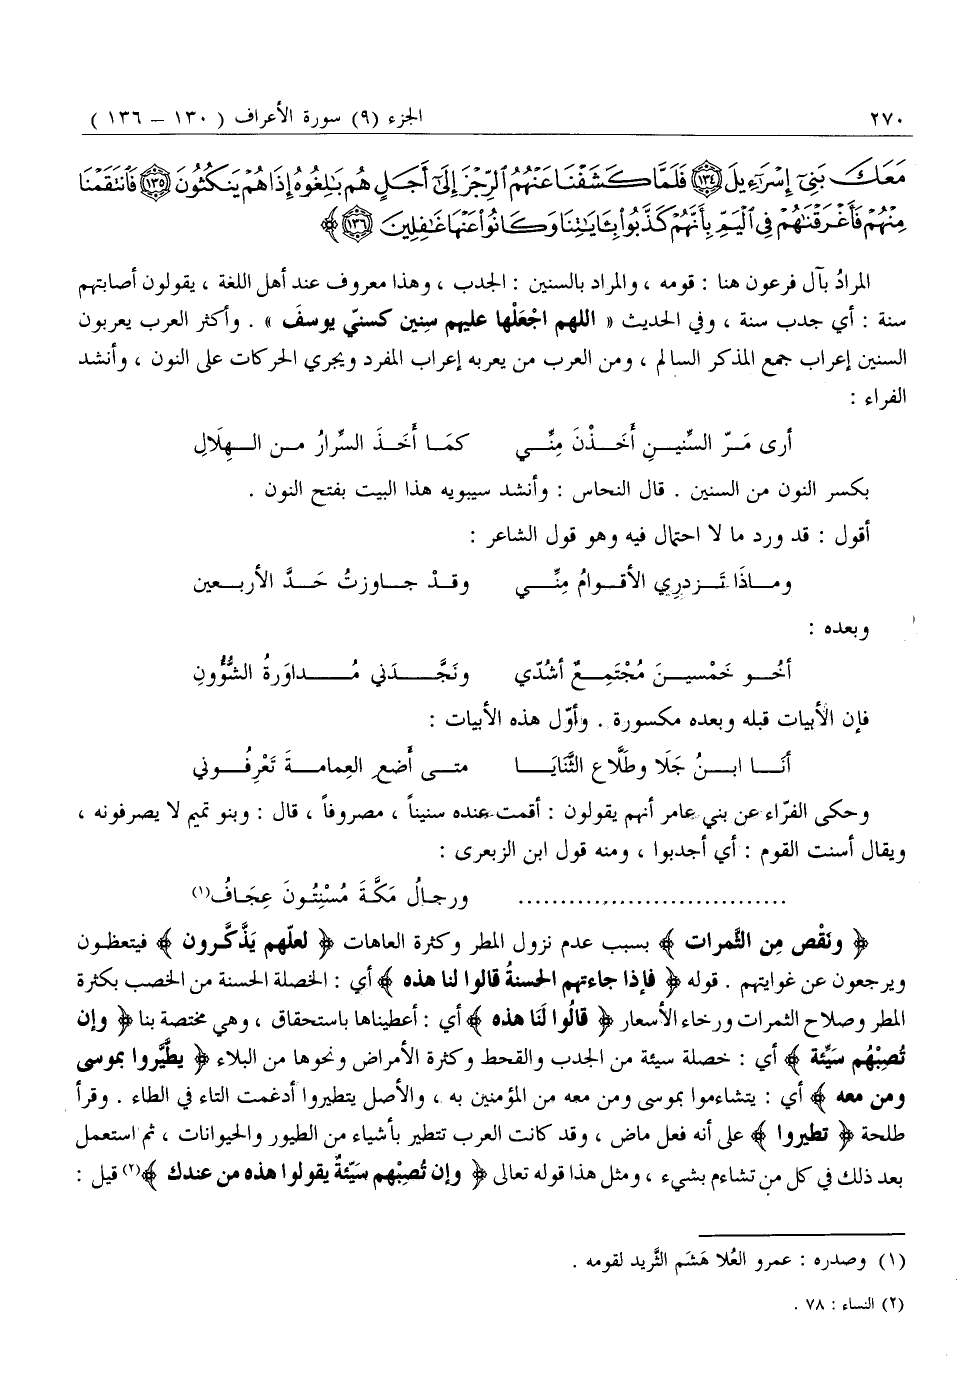 ٢٧٠ الجزء (٩) سورة الأعراف ( ١٣٠ – ١٣٦ )
مَعَكَ بَنِىٓ إِسْرَٰٓءِيلَ ﴿١٣٤﴾ فَلَمَّا كَشَفْنَا عَنْهُمُ ٱلرِّجْزَ إِلَىٰٓ أَجَلٍ هُم بَٰلِغُوهُ إِذَا هُمْ يَنكُثُونَ ﴿١٣٥﴾ فَٱنتَقَمْنَا
مِنْهُمْ فَأَغْرَقْنَٰهُمْ فِى ٱلْيَمِّ بِأَنَّهُمْ كَذَّبُوا۟ بِـَٔايَٰتِنَا وَكَانُوا۟ عَنْهَا غَٰفِلِينَ ﴿١٣٦﴾ ﴾
المرادُ بآل فرعون هنا : قومه ، والمراد بالسنين : الجدب ، وهذا معروف عند أهل اللغة ، يقولون أصابتهم
سنة : أي جدب سنة ، وفي الحديث « اللهم اجْعَلْها عليهم سِنِين كسنيّ يوسفَ » . وأكثر العرب يعربون
السنين إعراب جمع المذكر السالم ، ومن العرب من يعربه إعراب المفرد ويجري الحركات على النون ، وأنشد
الفراء :
أرى مَرّ السِّنِينِ أَخَذْنَ مِنِّي كمَا أَخَذَ السِّرارُ من الهِلَالِ
بكسر النون من السنين . قال النحاس : وأنشد سيبويه هذا البيت بفتح النون .
أقول : قد ورد ما لا احتمال فيه وهو قول الشاعر :
وماذَا تَزدرِي الأقوامُ مِنِّي وقدْ جاوزتُ حَدَّ الأربعين
وبعده :
أخُو خَمْسينَ مُجْتَمِعٌ أشُدّي ونَجَّدَني مُداوَرةُ الشُّؤُونِ
فإن الأبيات قبله وبعده مكسورة . وأوّل هذه الأبيات :
أنَا ابنُ جَلَا وطَلَّاع الثَّنَايَا متى أَضع العِمامةَ تَعْرِفُوني
وحكى الفرّاء عن بني عامر أنهم يقولون : أقمت عنده سنيناً ، مصروفاً ، قال : وبنو تميم لا يصرفونه ،
ويقال أسنت القوم : أي أجدبوا ، ومنه قول ابن الزبعرى :
.............................. ورجالُ مَكَّةَ مُسْنِتُونَ عِجَافُ(١)
﴿ ونَقْص مِن الثَّمرات ﴾ بسبب عدم نزول المطر وكثرة العاهات ﴿ لعلّهم يَذَّكَّرون ﴾ فيتعظون
ويرجعون عن غوايتهم . قوله ﴿ فإذا جاءتهم الحسنةُ قالوا لنا هذه ﴾ أي : الخصلة الحسنة من الخصب بكثرة
المطر وصلاح الثمرات ورخاء الأسعار ﴿ قالُوا لَنا هذه ﴾ أي : أعطيناها باستحقاق ، وهي مختصة بنا ﴿ وإن
تُصِبْهُم سَيِّئة ﴾ أي : خصلة سيئة من الجدب والقحط وكثرة الأمراض ونحوها من البلاء ﴿ يطَّيَّروا بموسى
ومن معه ﴾ أي : يتشاءموا بموسى ومن معه من المؤمنين به ، والأصل يتطيروا أدغمت التاء في الطاء . وقرأ
طلحة ﴿ تطيروا ﴾ على أنه فعل ماض ، وقد كانت العرب تتطير بأشياء من الطيور والحيوانات ، ثم استعمل
بعد ذلك في كل من تشاءم بشيء ، ومثل هذا قوله تعالى ﴿ وإن تُصِبْهم سَيِّئةٌ يقولوا هذه من عندك ﴾(٢) قيل :
(١) وصدره : عمرو العُلا هَشَم الثَّريد لقومه .
(٢) النساء : ٧٨ .